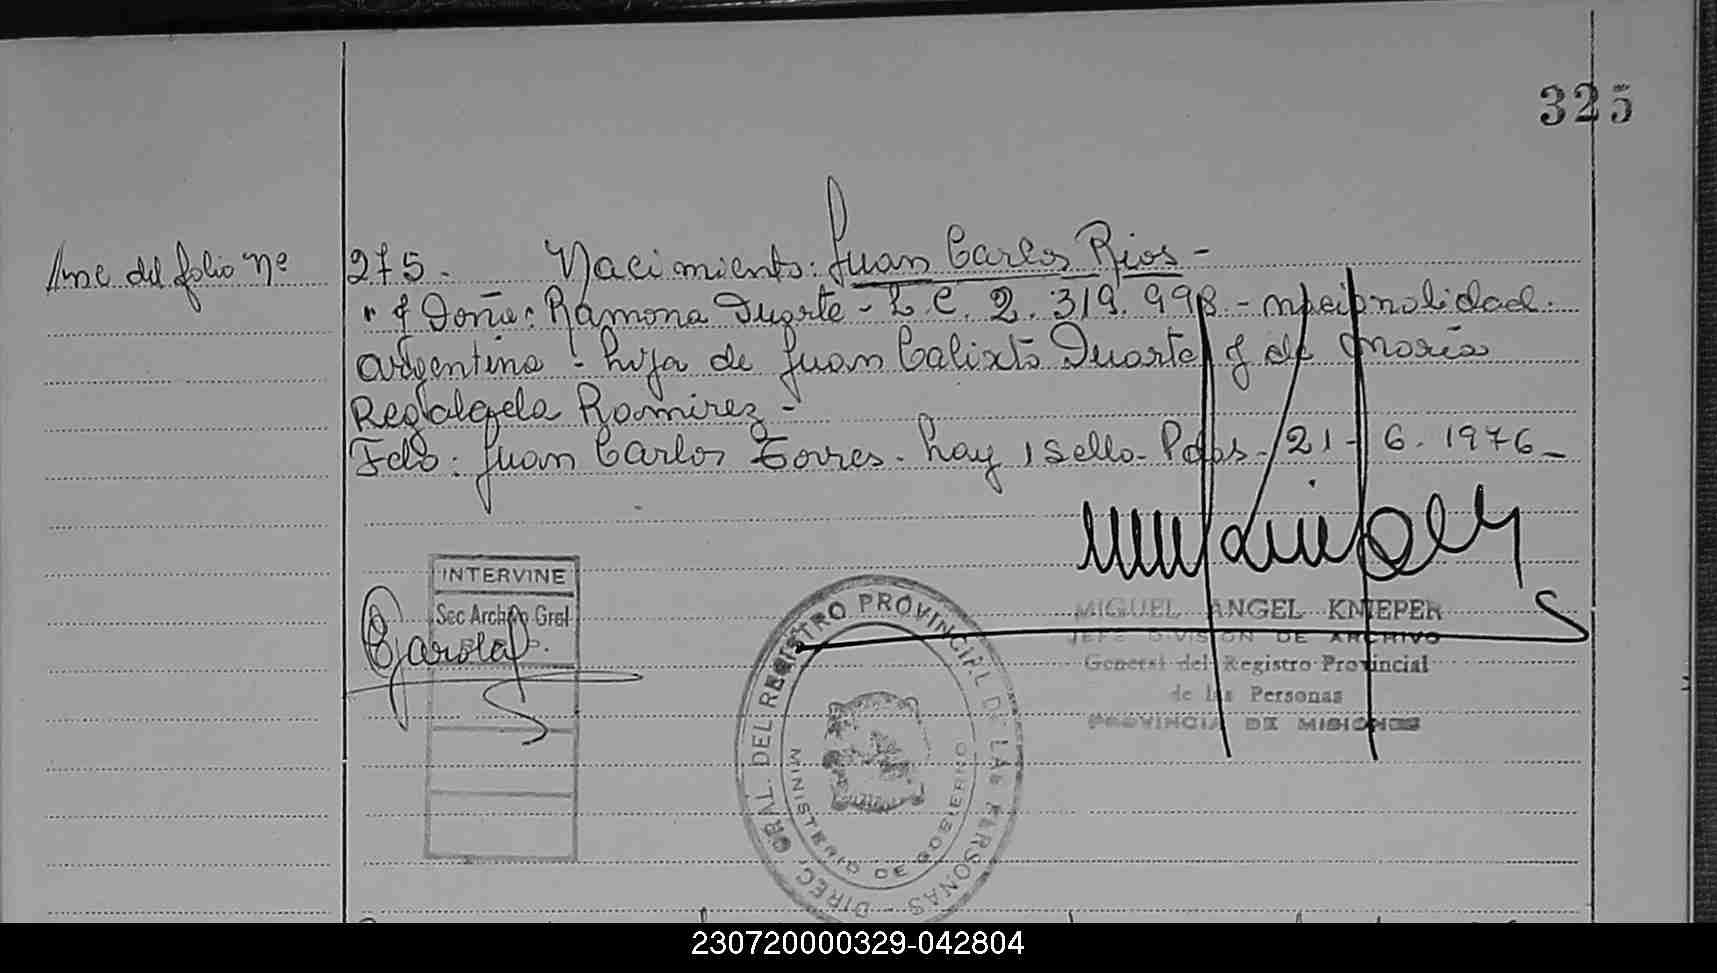 325
Anc del folio Nº 275. Nacimiento: Juan Carlos Rios -
" y Doña: Ramona Duarte - L.C. 2.319.998 - nacionalidad:
argentina - hija de Juan Calixto Duarte y de Maria
Regalada Ramirez -
Fdo: Juan Carlos Torres - hay 1 sello - Pdas - 21 - 6 - 1976 -
INTERVINE
Sec Archivo Gral
MIGUEL ANGEL KNIEPER
JEFE DIVISION DE ARCHIVO
General del Registro Provincial
de las Personas
PROVINCIA DE MISIONES
DIREC. GRAL. DEL REGISTRO PROVINCIAL DE LAS PERSONAS -
MINISTERIO DE GOBIERNO
230720000329-042804